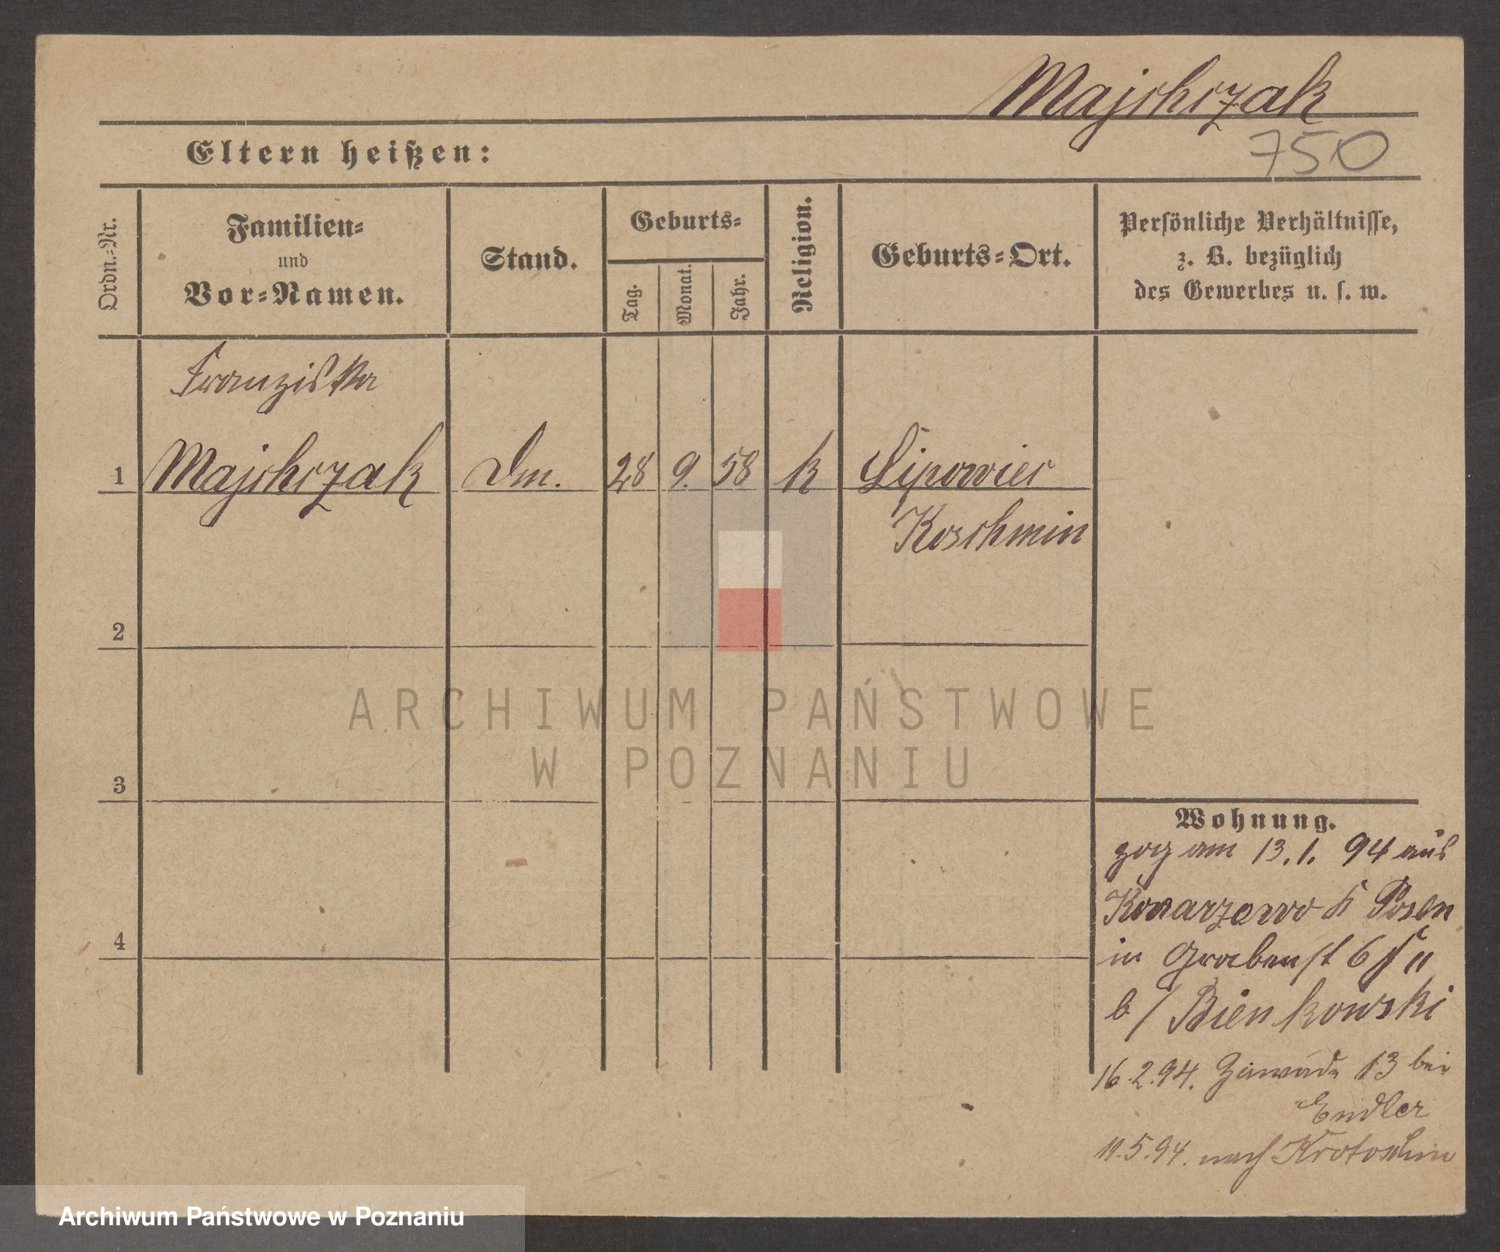 Majchrzak
750
Eltern heißen:
Ordn.-Nr.
Familien-
und
Vor-Namen.
Stand.
Geburts-
Tag.
Monat.
Jahr.
Religion.
Geburts-Ort.
Persönliche Verhältnisse,
z. B. bezüglich
des Gewerbes u. s. w.
Franziska
1 Majchrzak Dm. 28 9. 58 k Lipowiec
Koschmin
2
3
4
Wohnung.
zog am 13.1. 94 aus
Konarzewo K Posen
in Grabenst 6
b/ Bienkowski
16.2.94. Zawade 13 bei
Endler
11.5.94. nach Krotoschin
ARCHIWUM PAŃSTWOWE
W POZNANIU
Archiwum Państwowe w Poznaniu